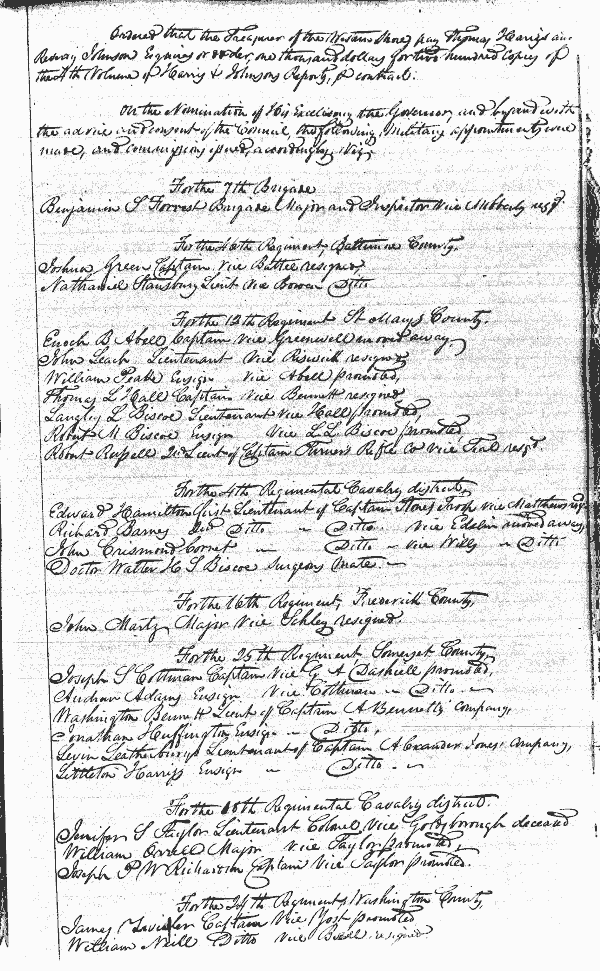 Ordered that the Treasurer of the Western Shore pay Thomas Harris and
Reverdy Johnson Esquires or order, one thousand dollars for two hundred Copies of
the 4th Volume of Harris & Johnsons Reports, p contract.
On the Nomination of His Excellency the Governor, and by and with
the advice and consent of the Council, the following Military appointments were
made, and commissions issued, accordingly Viz,
For the 7th Brigade
Benjamin S Forrest Brigade Major and Inspector Vice resgd.
For the Regiment, Baltimore County.
Joshua Green Captain Vice Battee resigned,
Nathaniel Stansbury Lieut Vice Bowen Ditto
For the 12th Regiment St Mary's County.
Enoch B Abell Captain Vice Greenwell moved away,
John Leach Lieutenant Vice resigned
William Peake Ensign Vice Abell promoted,
Thomas L Hall Captain Vice Bennett resigned,
Langley L Biscoe Lieutenant Vice Hall promoted,
Robert M Biscoe Ensign Vice L L Biscoe promoted
Robert Russell 2d Lieut of Captain Turner's Rifle Co vice resgd.
For the 4th Regimental Cavalry district,
Edward Hamilton first Lieutenant of Captain Stones Troop vice Matthews resgd
Richard Barnes 2nd Ditto " Ditto Vice Edelin moved away,
John Cresmond Cornet " Ditto " vice Wills " Ditto
Doctor Walter H S Biscoe Surgeons Mate. "
For the 16th Regiment, Frederick County,
John Martz Major Vice Schley resigned.
For the 25th Regiment Somerset County,
Joseph S Cottman Captain Vice G A Dashiell promoted,
Andrew Adams Ensign Vice Cottman " Ditto "
Washington Bennett Lieut of Captain A Bennetts' Company,
Jonathan Huffington Ensign " Ditto,
Levin Leatherbury Lieutenant of Captain Alexander Jones' company,
Littleton Harriss Ensign " Ditto "
For the 10th Regimental Cavalry district.
Jenifer S Taylor Lieutenant Colonel Vice Goldsborough deceased
William Orrell Major Vice Taylor promoted,
Joseph P W Richardson Captain Vice Taylor promoted.
For the 24th Regiment, Washington County,
James Captain Vice Yost promoted
William Neill Ditto Vice Beall resigned